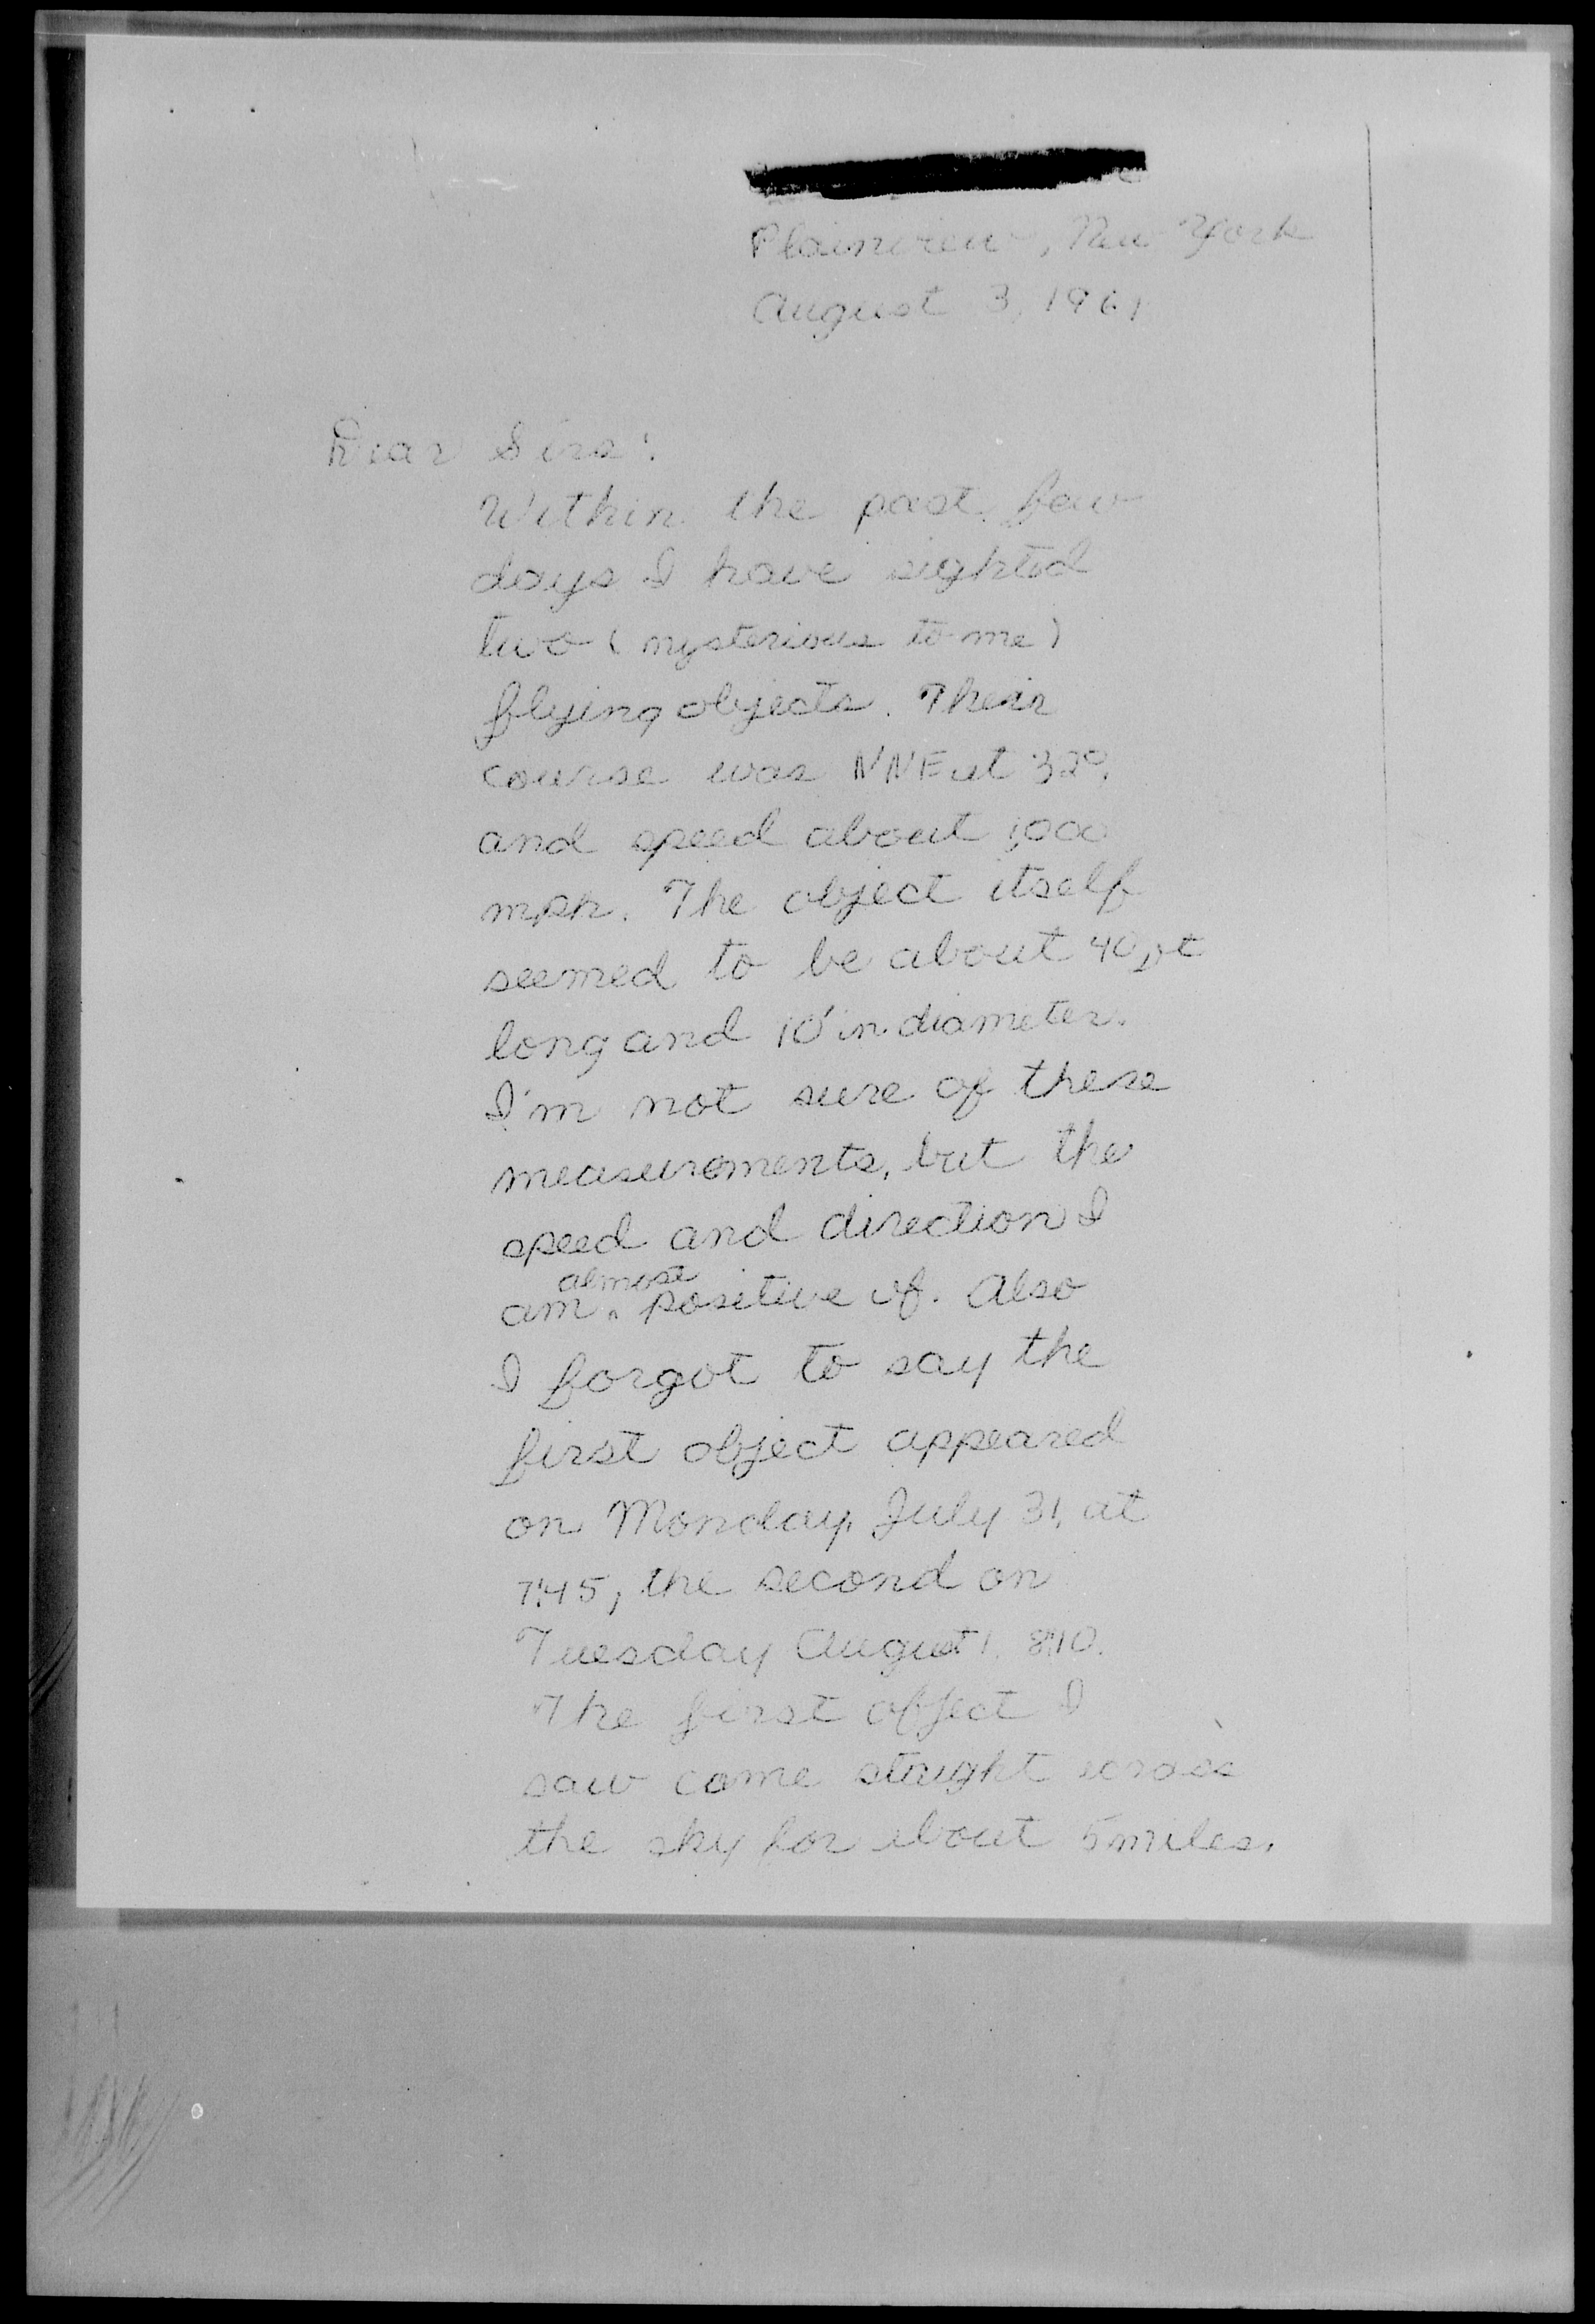 Plainview, New York
August 3, 1961
Dear Sirs:
Within the past few
days I have sighted
two (mysterious to me)
flying objects. Their
course was NNE at 32°,
and speed about 1,000
mph. The object itself
seemed to be about 40 ft
long and 10' in diameter.
I'm not sure of these
measurements, but the
speed and direction I
am almost positive of. Also
I forgot to say the
first object appeared
on Monday, July 31, at
7:45, the second on
Tuesday August 1, 8:10.
The first object I
saw came staight across
the sky for about 5 miles.